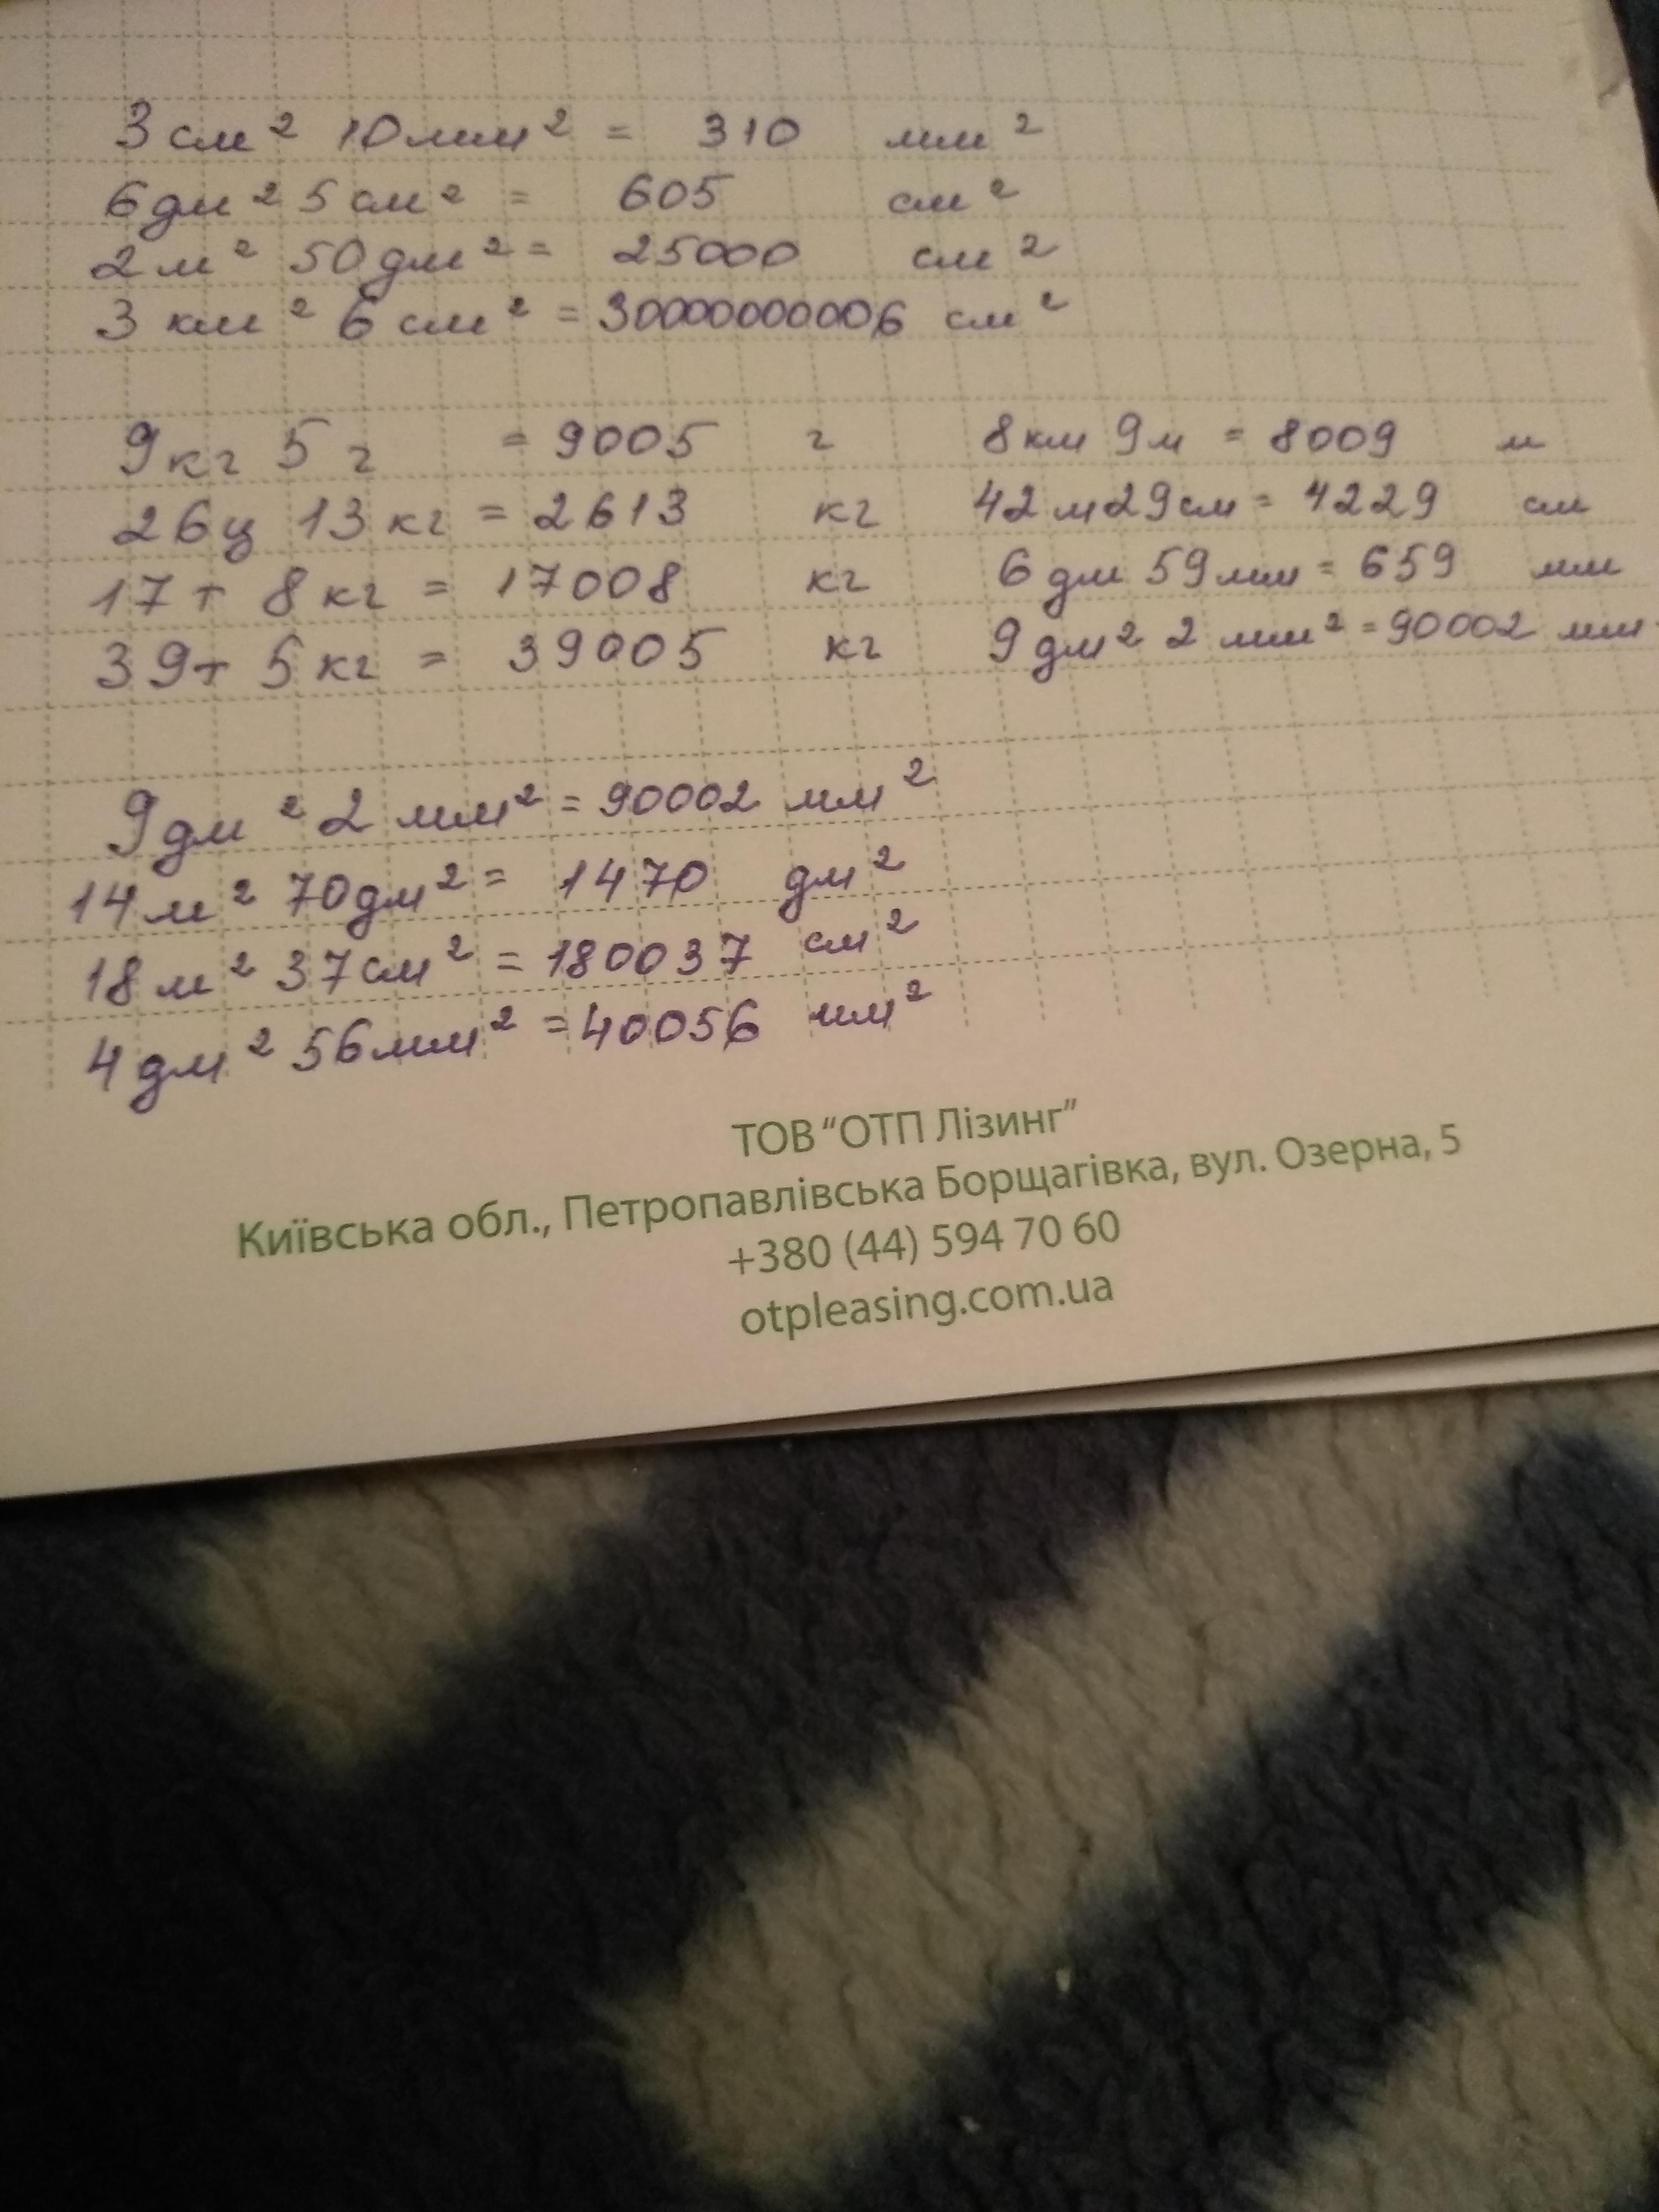 3 см² 10 мм² = 310 мм²
6 дм² 5 см² = 605 см²
2 м² 50 дм² = 25000 см²
3 км² 6 см² = 30000000006 см²
9 кг 5 г = 9005 г
26 ц 13 кг = 2613 кг
17 т 8 кг = 17008 кг
39 т 5 кг = 39005 кг
8 км 9 м = 8009 м
42 м 29 см = 4229 см
6 дм 59 мм = 659 мм
9 дм² 2 мм² = 90002 мм
9 дм² 2 мм² = 90002 мм²
14 м² 70 дм² = 1470 дм²
18 м² 37 см² = 180037 см²
4 дм² 56 мм² = 40056 мм²
ТОВ "ОТП Лізинг"
Київська обл., Петропавлівська Борщагівка, вул. Озерна, 5
+380 (44) 594 70 60
otpleasing.com.ua